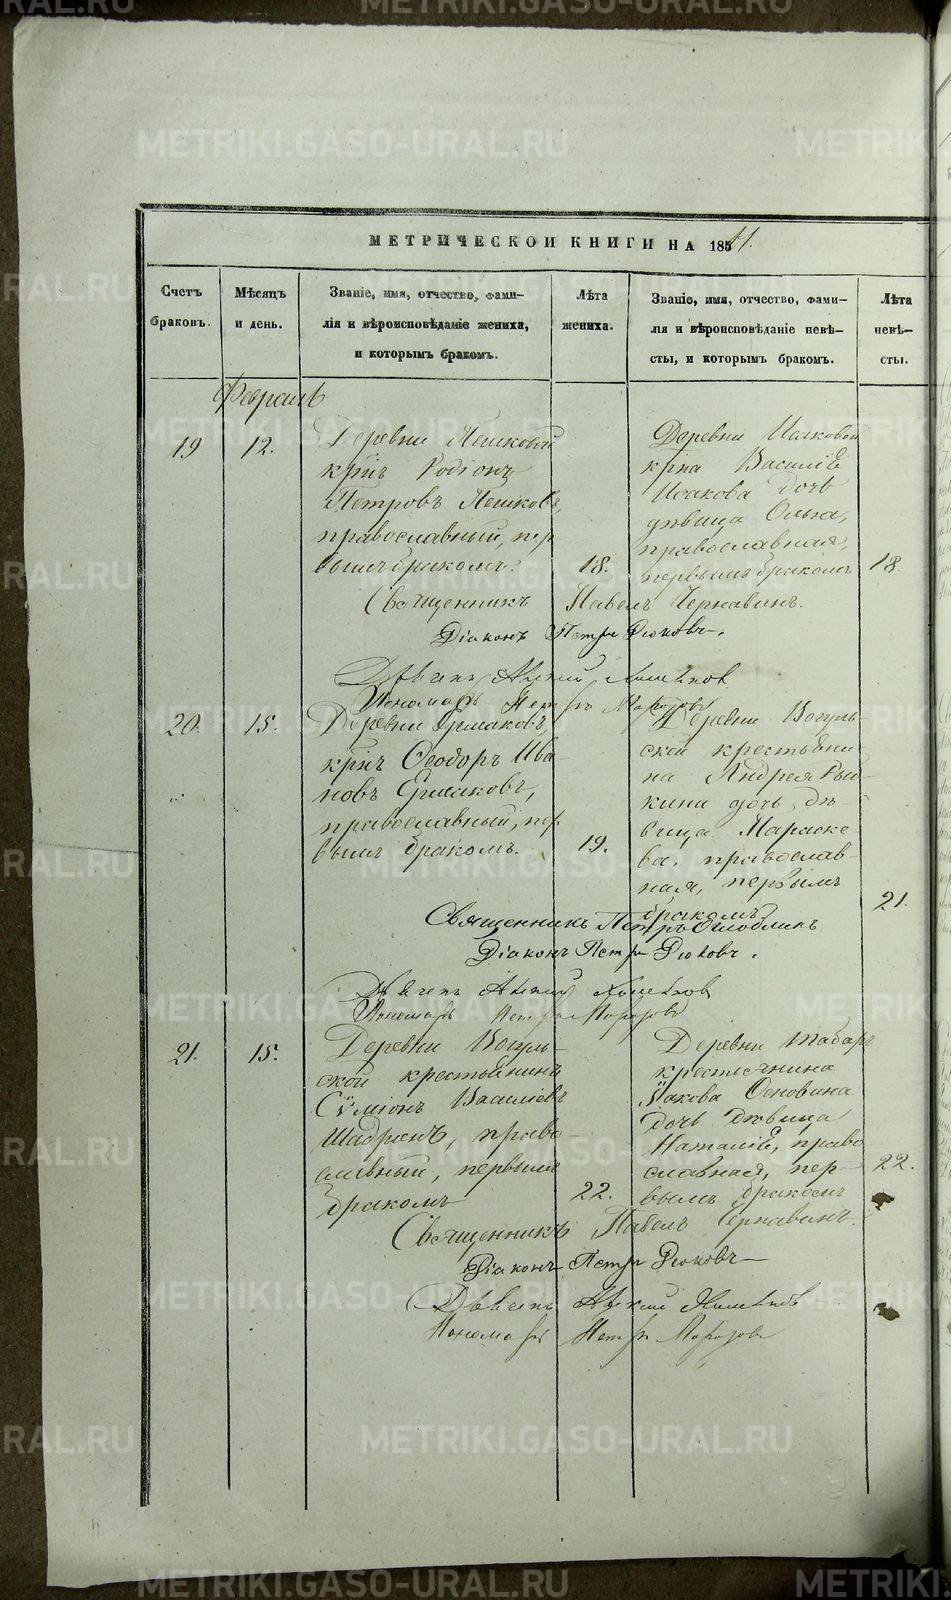 МЕТРИЧЕСКОЙ КНИГИ НА 185
Счетъ
браковъ.
Мѣсяцъ
и день.
Званіе, имя, отчество, фами-
лія и вѣроисповѣданіе жениха,
и которымъ бракомъ.
Лѣта
жениха.
Званіе, имя, отчество, фами-
лія и вѣроисповѣданіе невѣ-
сты, и которымъ бракомъ.
Лѣта
невѣ-
сты.
Февраль
19
12.
Деревни Пешковой
крнъ Родіонъ
Петровъ Пешковъ,
православный, пер
вымъ бракомъ.
18.
Деревни Исаковой
крна Василія
Исакова дочь
дѣвица Ольга,
православная,
первымъ бракомъ
18
Священникъ Павелъ Чернавинъ.
Діаконъ Петръ Рюковъ.
Дьячекъ
Пономарь Петръ Морозовъ
20.
15.
Деревни Ермаковъ
крнъ Ѳеодоръ Ива
новъ Ермаковъ,
православный, пер
вымъ бракомъ.
19.
Деревни Вогуль-
ской крестьяни
на Андрея Рыч-
кина дочь, дѣ-
вица Параске
ва, православ-
ная, первымъ
бракомъ.
21.
Священникъ Петръ
Діаконъ Петръ Рюковъ.
Дьячекъ
Пономарь Петръ Морозовъ
21.
15.
Деревни Вогуль-
ской крестьянинъ
Сѵмеонъ Василіевъ
Шадринъ, право-
славный, первымъ
бракомъ
22.
Деревни Табаръ
крестьянина
Іакова Основина
дочь дѣвица
Наталія, право
славная, пер-
вымъ бракомъ
22.
Священникъ Павелъ Чернавинъ.
Діаконъ Петръ Рюковъ
Дьячекъ
Пономарь Петръ Морозовъ
METRIKI.GASO-URAL.RU